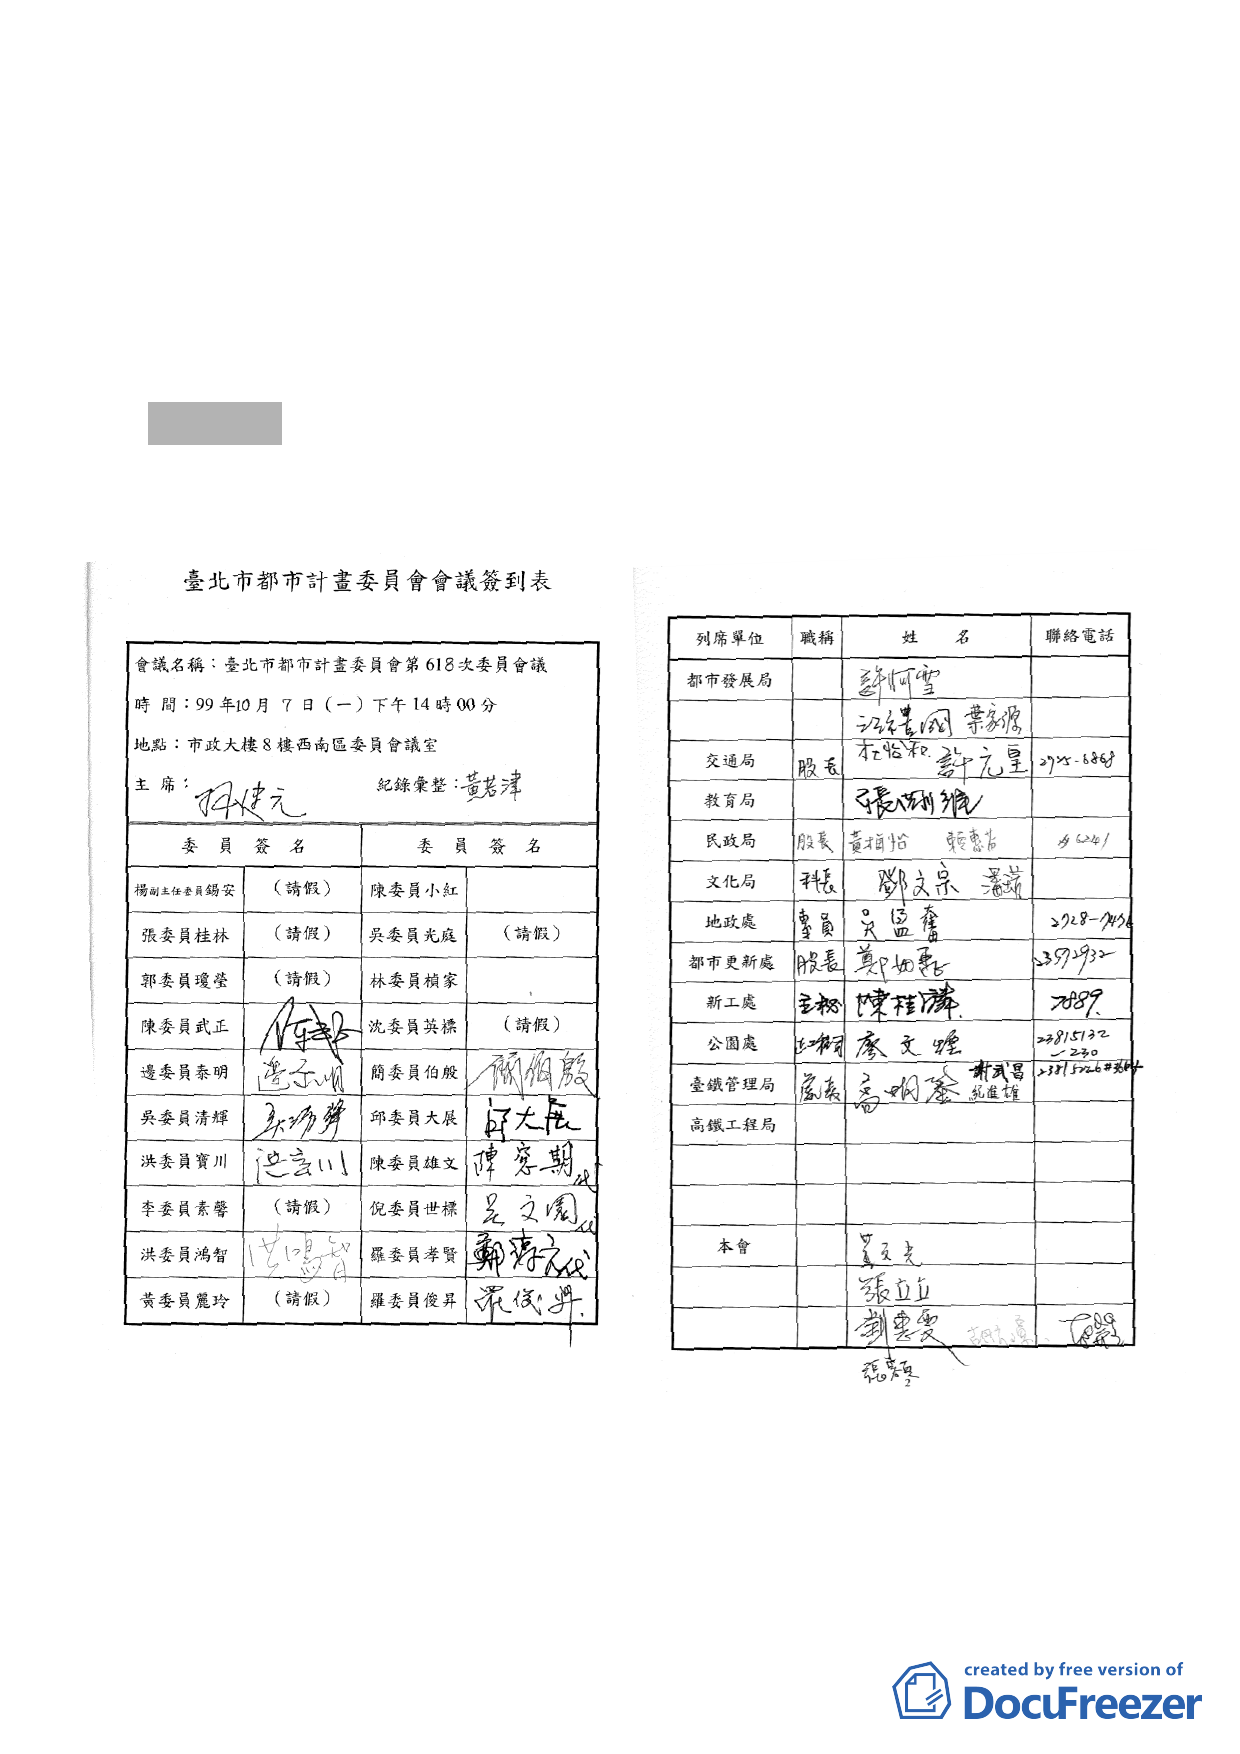 臺北市都市計畫委員會會議簽到表
會議名稱：臺北市都市計畫委員會第618次委員會議
時 間：99年10月 7 日（一）下午14時00分
地點：市政大樓8樓西南區委員會議室
主 席： 紀錄彙整：黃若津
委 員 簽 名 委 員 簽 名
楊副主任委員錫安 （請假） 陳委員小紅
張委員桂林 （請假） 吳委員光庭 （請假）
郭委員瓊瑩 （請假） 林委員楨家
陳委員武正 沈委員英標 （請假）
邊委員泰明 邊泰明 簡委員伯殷 簡伯殷
吳委員清輝 吳清輝 邱委員大展 邱大展
洪委員寶川 洪寶川 陳委員雄文 陳 期代
李委員素馨 （請假） 倪委員世標 吳文國代
洪委員鴻智 洪鴻智 羅委員孝賢 鄭淳元代
黃委員麗玲 （請假） 羅委員俊昇 羅俊昇
列席單位 職稱 姓 名 聯絡電話
都市發展局 許阿雪
葉家源
交通局 股長 杜怡和 許元皇 2725-6868
教育局
民政局 股長 黃 怡 6241
文化局 科長 鄧文宗
地政處 專員 吳 2728-
都市更新處 股長 鄭如惠 23572932
新工處 主秘 陳桂 7889
公園處 廖文 23815132
-230
臺鐵管理局 處長 高明鎏 謝武昌 23815226#
高鐵工程局
本會 黃文光
張立立
劉惠雯
created by free version of
DocuFreezer